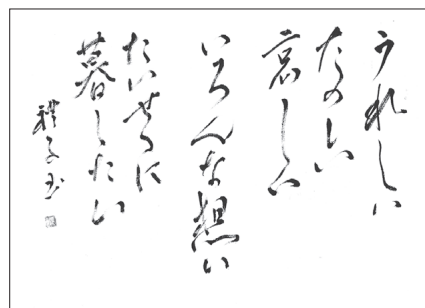 うれしい
たのしい
哀しい
いろんな想い
たいせつに
暮したい
禮子玉